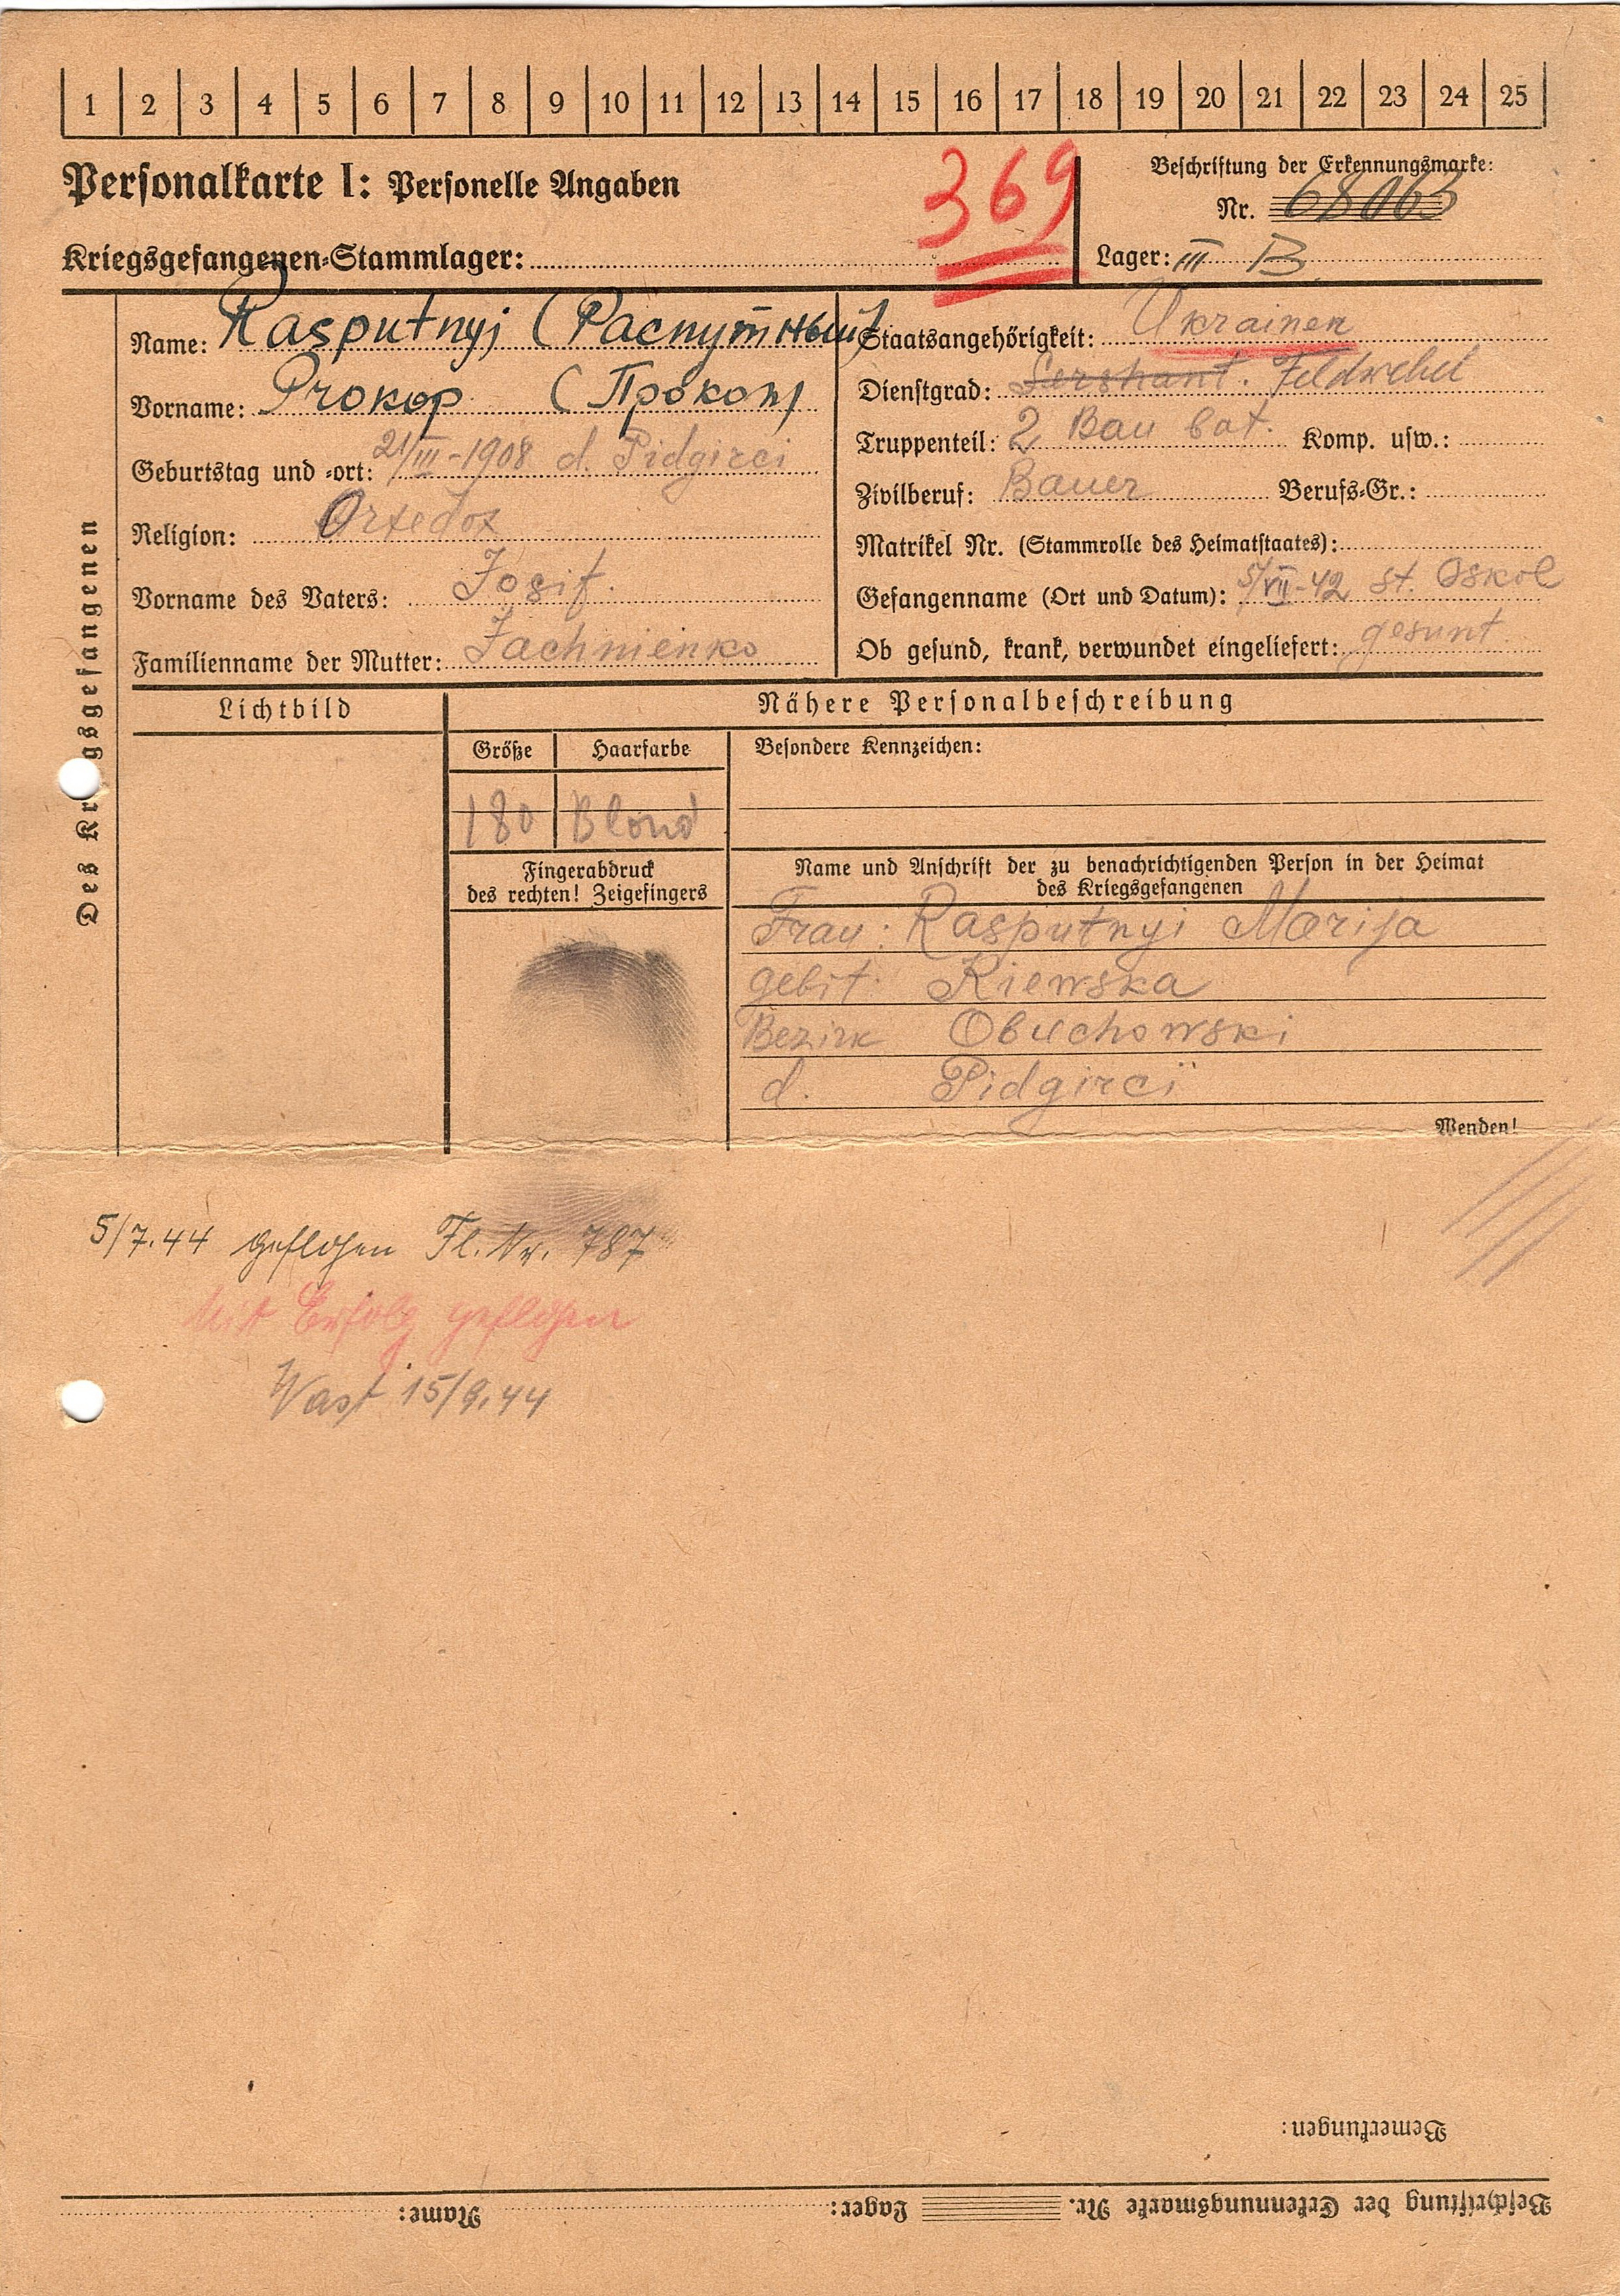 1 2 3 4 5 6 7 8 9 10 11 12 13 14 15 16 17 18 19 20 21 22 23 24 25
Personalkarte I: Personelle Angaben
369
Beschriftung der Erkennungsmarke:
Nr. 68063
Kriegsgefangenen-Stammlager:
Lager: III B
Des Kriegsgefangenen
Name: Rasputnyj (Распутный)
Vorname: Prokop (Прокоп)
Geburtstag und -ort: 21/III-1908 d. Pidgirci
Religion: Ortedox
Vorname des Vaters: Josif.
Familienname der Mutter: Jachnienko
Staatsangehörigkeit: Ukrainer
Dienstgrad: Sershant. Feldwebel
Truppenteil: 2 Bau bat. Komp. usw.:
Zivilberuf: Bauer Berufs-Gr.:
Matrikel Nr. (Stammrolle des Heimatstaates):
Gefangenname (Ort und Datum): 5/VII-42 st. Oskol
Ob gesund, krank, verwundet eingeliefert: gesunt
Lichtbild
Nähere Personalbeschreibung
Größe Haarfarbe Besondere Kennzeichen:
180 Blond
Fingerabdruck
des rechten! Zeigefingers
Name und Anschrift der zu benachrichtigenden Person in der Heimat
des Kriegsgefangenen
Frau: Rasputnyi Marija
gebit. Kiewska
Bezirk Obuchowski
d. Pidgirci
Wenden!
5/7.44 geflohen Fl. Nr. 787
Mit Erfolg geflohen
Wast 15/9.44
Bemerkungen:
Beschriftung der Erkennungsmarke Nr. Lager: Name: